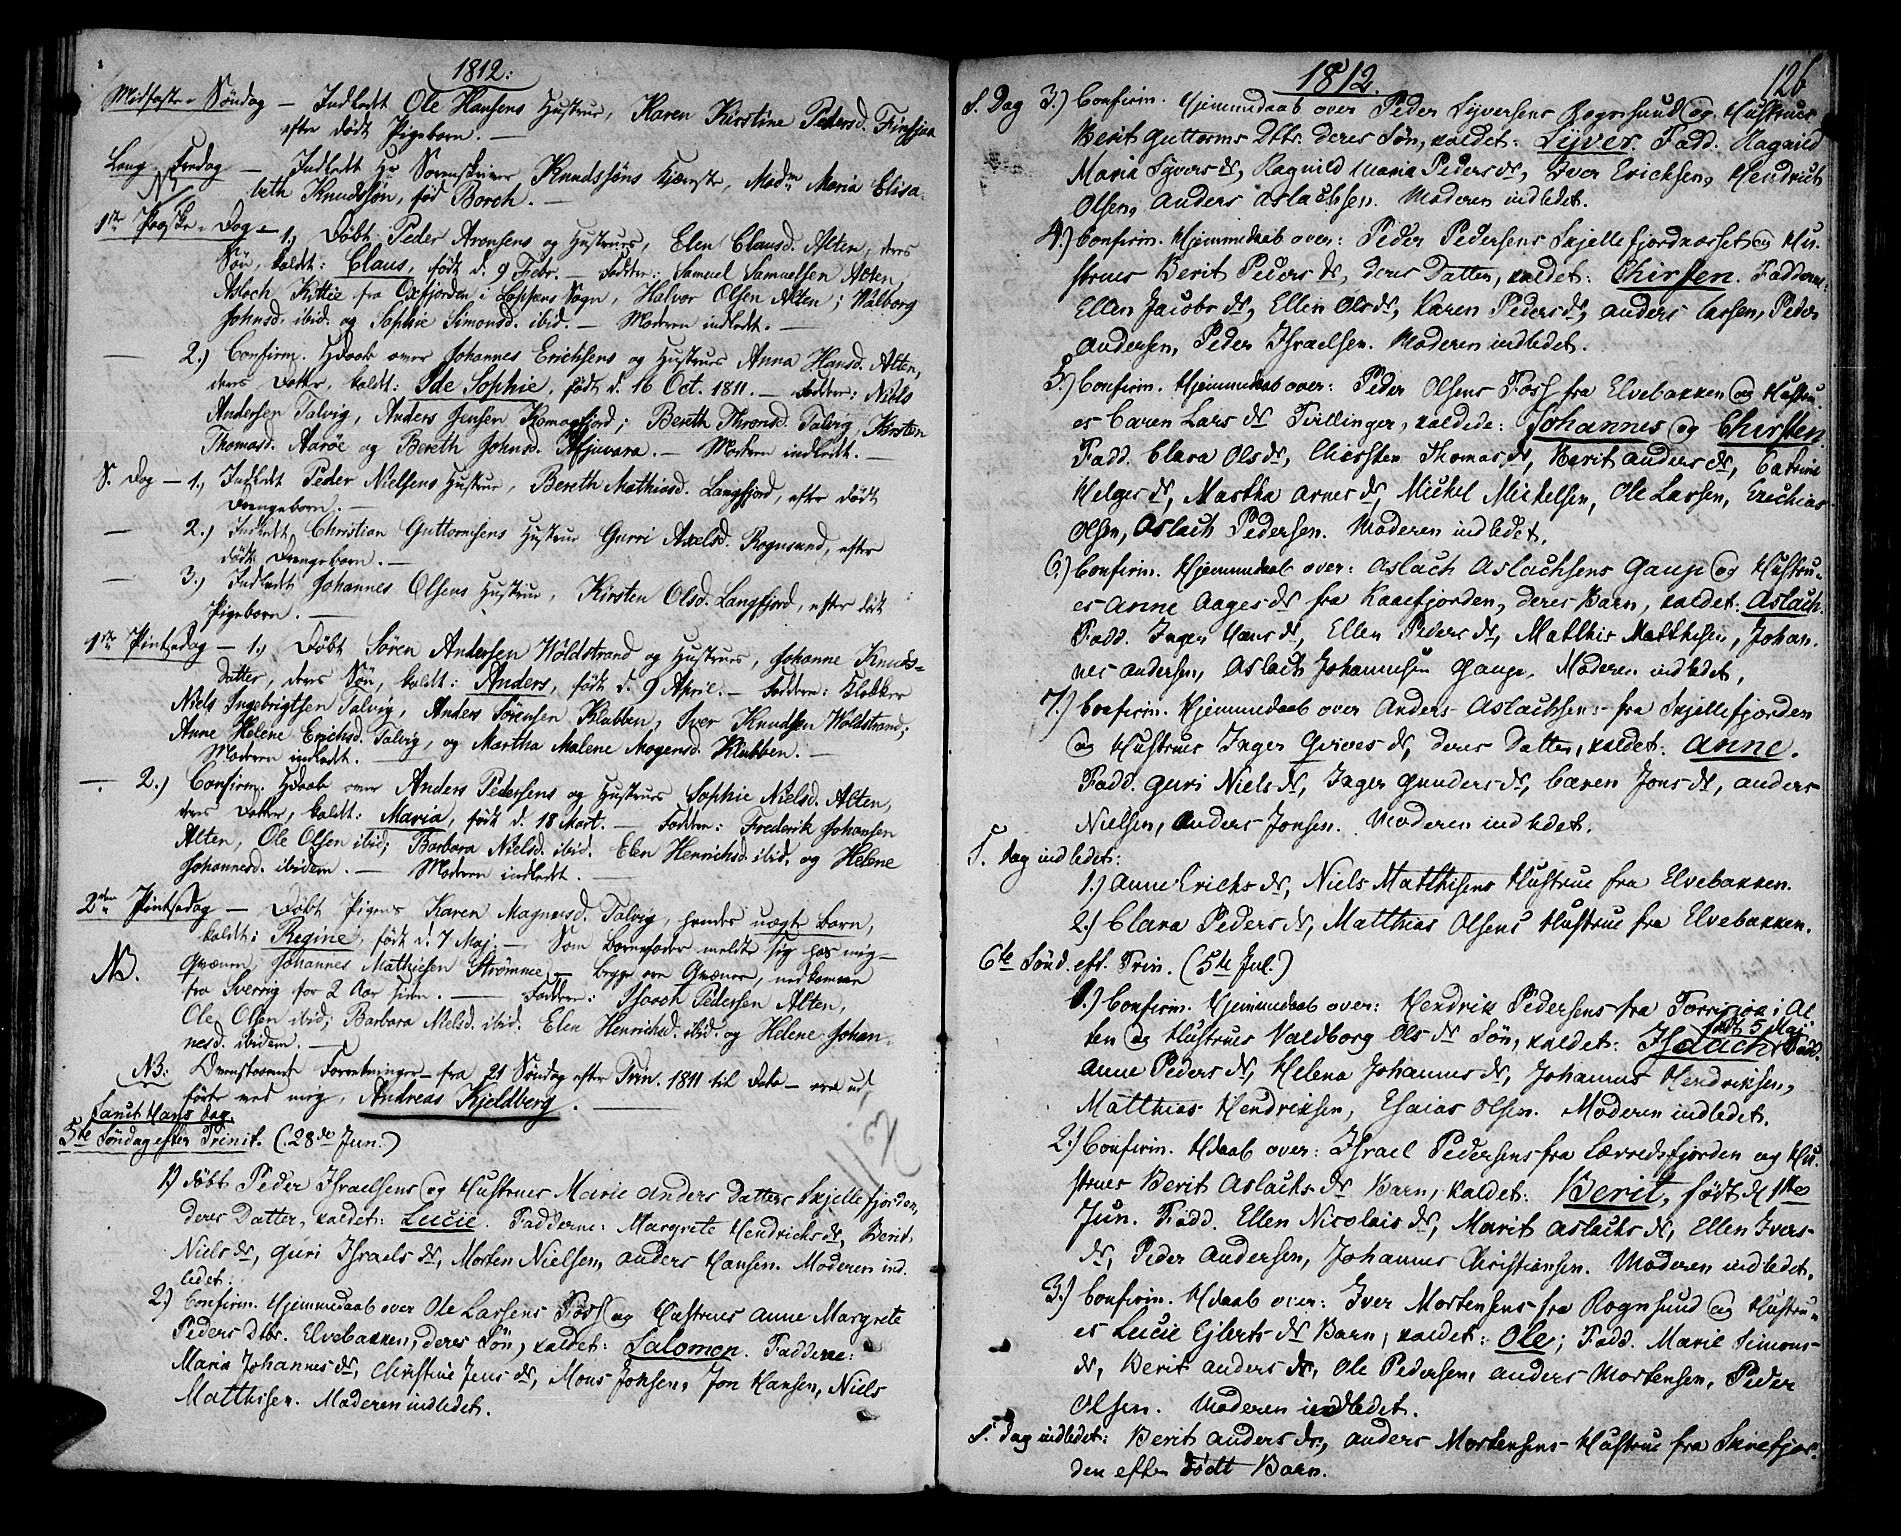 1812:
Midfaste-Søndag — Indledt Ole Hansens Hustrue, Karen Kirstine Pedersd. Finfjua
efter dødt Pigebarn. —
Lang-Fredag — Indledt Hr Sorenskriver Knudssøns Kjæreste, Madm Maria Elisa-
beth Knudssøn, fød Borch. —
1ste Paaske-Dag — 1., Døbt Peder Aronsens og Hustrues, Elen Clausd. Alten, deres
Søn, kaldt: Claus, født d. 9 Febr. — Faddere: Samuel Samuelsen Alten,
Aslach Kittie fra Oxfjorden i Loppens Sogn, Halvor Olsen Alten; Walborg
Johnsd. ibid. og Sophie Simonsd. ibid. — Moderen indledt. —
— 2.) Confirm. Hdaab over Johannes Erichsens og Hustrues Anna Hansd. Alten,
deres Datter, kaldt: Ide Sophie, født d. 16 Oct. 1811. — Faddere: Niels
Andersen Talvig, Anders Jensen Komagfjord; Bereth Thronsd. Talvig, Kirsten
Thomasd. Aarøe og Bereth Johnsd. — Moderen indledt. —
S. Dag — 1., Indledt Peder Nielsens Hustrue, Bereth Mathiasd. Langfjord, efter dødt
Drengebarn. —
— 2.) Indledt, Christian Guttormsens Hustrue Gurri Axelsd. Rognsund, efter
dødt Drengebarn. —
— 3.) Indledt Johannes Olsens Hustrue, Kirsten Olsd. Langfjord, efter dødt
Pigebarn. —
1ste Pintsedag — 1., Døbt Søren Andersen Woldstrand og Hustrues, Johanne Knuds-
datter, deres Søn, kaldt: Anders, født d. 9 April. — Faddere: Klokker
Niels Ingebrigtsen Talvig, Anders Sørensen Klubben, Iver Knudsen Woldstrand;
Anne Helene Erichsd. Talvig, og Martha Malene Mogensd. Klubben. —
Moderen indledt. —
— 2.) Confirm. Hdaab over Anders Pedersens og Hustrues Sophie Nielsd. Alten,
deres Datter, kaldt: Maria, født d. 18 Mart. — Faddere: Frederik Johansen
Alten, Ole Olsen ibid; Barbara Nielsd. ibid. Elen Henrichsd. ibid. og Helene
Johannesd. ibidem. — Moderen indledt. —
2den Pintsedag — Døbt Pigens Karen Magnusd. Talvig, hendes uægte Barn,
kaldt: Regine, født d. 7 Maj. — Som Barnefader meldte sig hos mig —
NB. Qvænen, Johannes Mathiesen Strømnee — begge ere Qvæner, nedkomne
fra Sverrig for 2 Aar siden. — Faddere: Isaach Pedersen Alten,
Ole Olsen ibid; Barbara Nielsd. ibid. Elen Henrichsd. ibid. og Helene Johan-
nesd. ibidem. —
NB: Ovenstaaende Forretninger — fra 21 Søndag efter Trin. 1811 til Dato — ere ud-
førte ved mig, Andreas Kjeldberg. —
Sanct Hans dag.
5te Søndag efter Trinit. (28de Jun.)
112
1) Døbt Peder Israelsens og Hustrues Marie Anders Datters Skjellefjorden,
deres Datter, kaldet: Lucie. Fadderne: Margrete Hendrichs dr, Berit
Niels dr, Guri Israels dr, Morten Nielsen, Anders Hansen. Moderen ind-
ledet.
2.) Confirm. Hjemmedaab over Ole Larsens Foss og Hustrues Anne Margrete
Peders dtr. Elvebakken, deres Søn, kaldet: Salomon. Fadderne:
Maria Johannes dr, Christine Jens dr, Mons Johsen, Jon Hansen, Niels
Matthisen. Moderen indledet.
1812.
126
S. Dag 3.) Confirm. Hjemmedaab over Peder Syversens Rognsund og Hustrues
Berit Guttorms Dtrs. deres Søn, kaldet: Syver. Fadd. Ragnild
Maria Syvers dr, Ragnild Maria Peders dr, Iver Ericksen, Hendrich
Olsen, Anders Aslachsen. Moderen indledet.
4.) Confirm. Hjemmedaab over: Peder Pedersens Skjellefjordnæsset og Hu-
strues Berit Peders dr, deres Datter, kaldet: Chirsten. Fadderne:
Ellen Jacobs dr, Ellen Ols dr, Karen Peders dr, Anders Larsen, Peder
Andersen, Peder Israelsen. Moderen indledet.
5.) Confirm. Hjemmedaab over: Peder Olsens Foss fra Elvebakken og Hustru-
es Caren Lars dr Tvillinger, kaldede: Johannes og Chirsten.
Fadd. Clara Ols dr, Chirsten Thomas dr, Berit Anders dr, Catrine
Helges dr, Martha Arnes dr, Mickel Mickelsen, Ole Larsen, Erichias
Olsen, Aslach Pedersen. Moderen indledet.
6.) Confirm. Hjemmedaab over: Aslach Aslachsens Gaup og Hustru-
es Anne Aages dr fra Kaaefjorden, deres Barn, kaldet: Aslach.
Fadd. Inger Hans dr, Ellen Peders dr, Matthis Matthisen, Johan-
nes Andersen, Aslach Johannesen Gaup. Moderen indledet.
7.) Confirm. Hjemmedaab over Anders Aslachsens fra Skjellefjorden
og Hustrues Inger Grives dr, deres Datter, kaldet: Anne.
Fadd. Guri Niels dr, Inger Gunders dr, Caren Jons dr, Anders
Nielsen, Anders Jonsen. Moderen indledet.
S. Dag indledet:
1.) Anne Erichs dr, Niels Matthisens Hustrue fra Elvebakken.
2.) Clara Peders dr, Matthias Olsens Hustrue fra Elvebakken.
6te Sønd. eft. Trin. (5te Jul.)
1.) Confirm. Hjemmedaab over: Hendrik Pedersens fra i Al-
født 5 Maj
ten og Hustrues Valdborg Ols dr Søn, kaldet: Isaach. Fadd.
Anne Peders dr, Helena Johannes dr, Johannes Hendriksen,
Matthias Hendriksen, Esaias Olsen. Moderen indledet.
2.) Confirm. Hdaab over: Israel Pedersens fra Lærredsfjorden og Hu-
strues Berit Aslachs dr Barn, kaldet: Berit, født d 1ste
Jun. Fadd. Ellen Nicolais dr, Marit Aslachs dr, Ellen Ivers-
dr, Peder Andersen, Johannes Christiansen. Moderen indledet.
3.) Confirm. Hdaab over: Iver Mortensens fra Rognsund og Hustru-
es Lucie Ejlerts dr Barn, kaldet: Ole; Fadd. Marie Simons-
dr, Berit Anders dr, Ole Pedersen, Anders Mortensen, Peder
Olsen. Moderen indledet.
S. Dag indledet: Berit Anders dr, Anders Mortensens Hustrue fra Skirefjor-
den efter Født Barn.